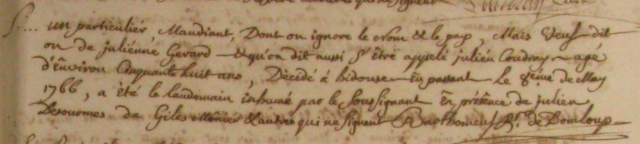 un particulier, Mandiant, Dont on ignore le nom & le pay, Mais Veuf dit
on de julienne Gerard — & qu'on dit aussi S'être appelé julien Coudray — agé
d'environ Cinquante huit ans, Décédé à bidouse — En passant Le 8ème de May
1766, a été le landemain inhumé par le Soussignant En présence de julien
de Giles & autres qui ne signent Barthomeuf de Domloup —